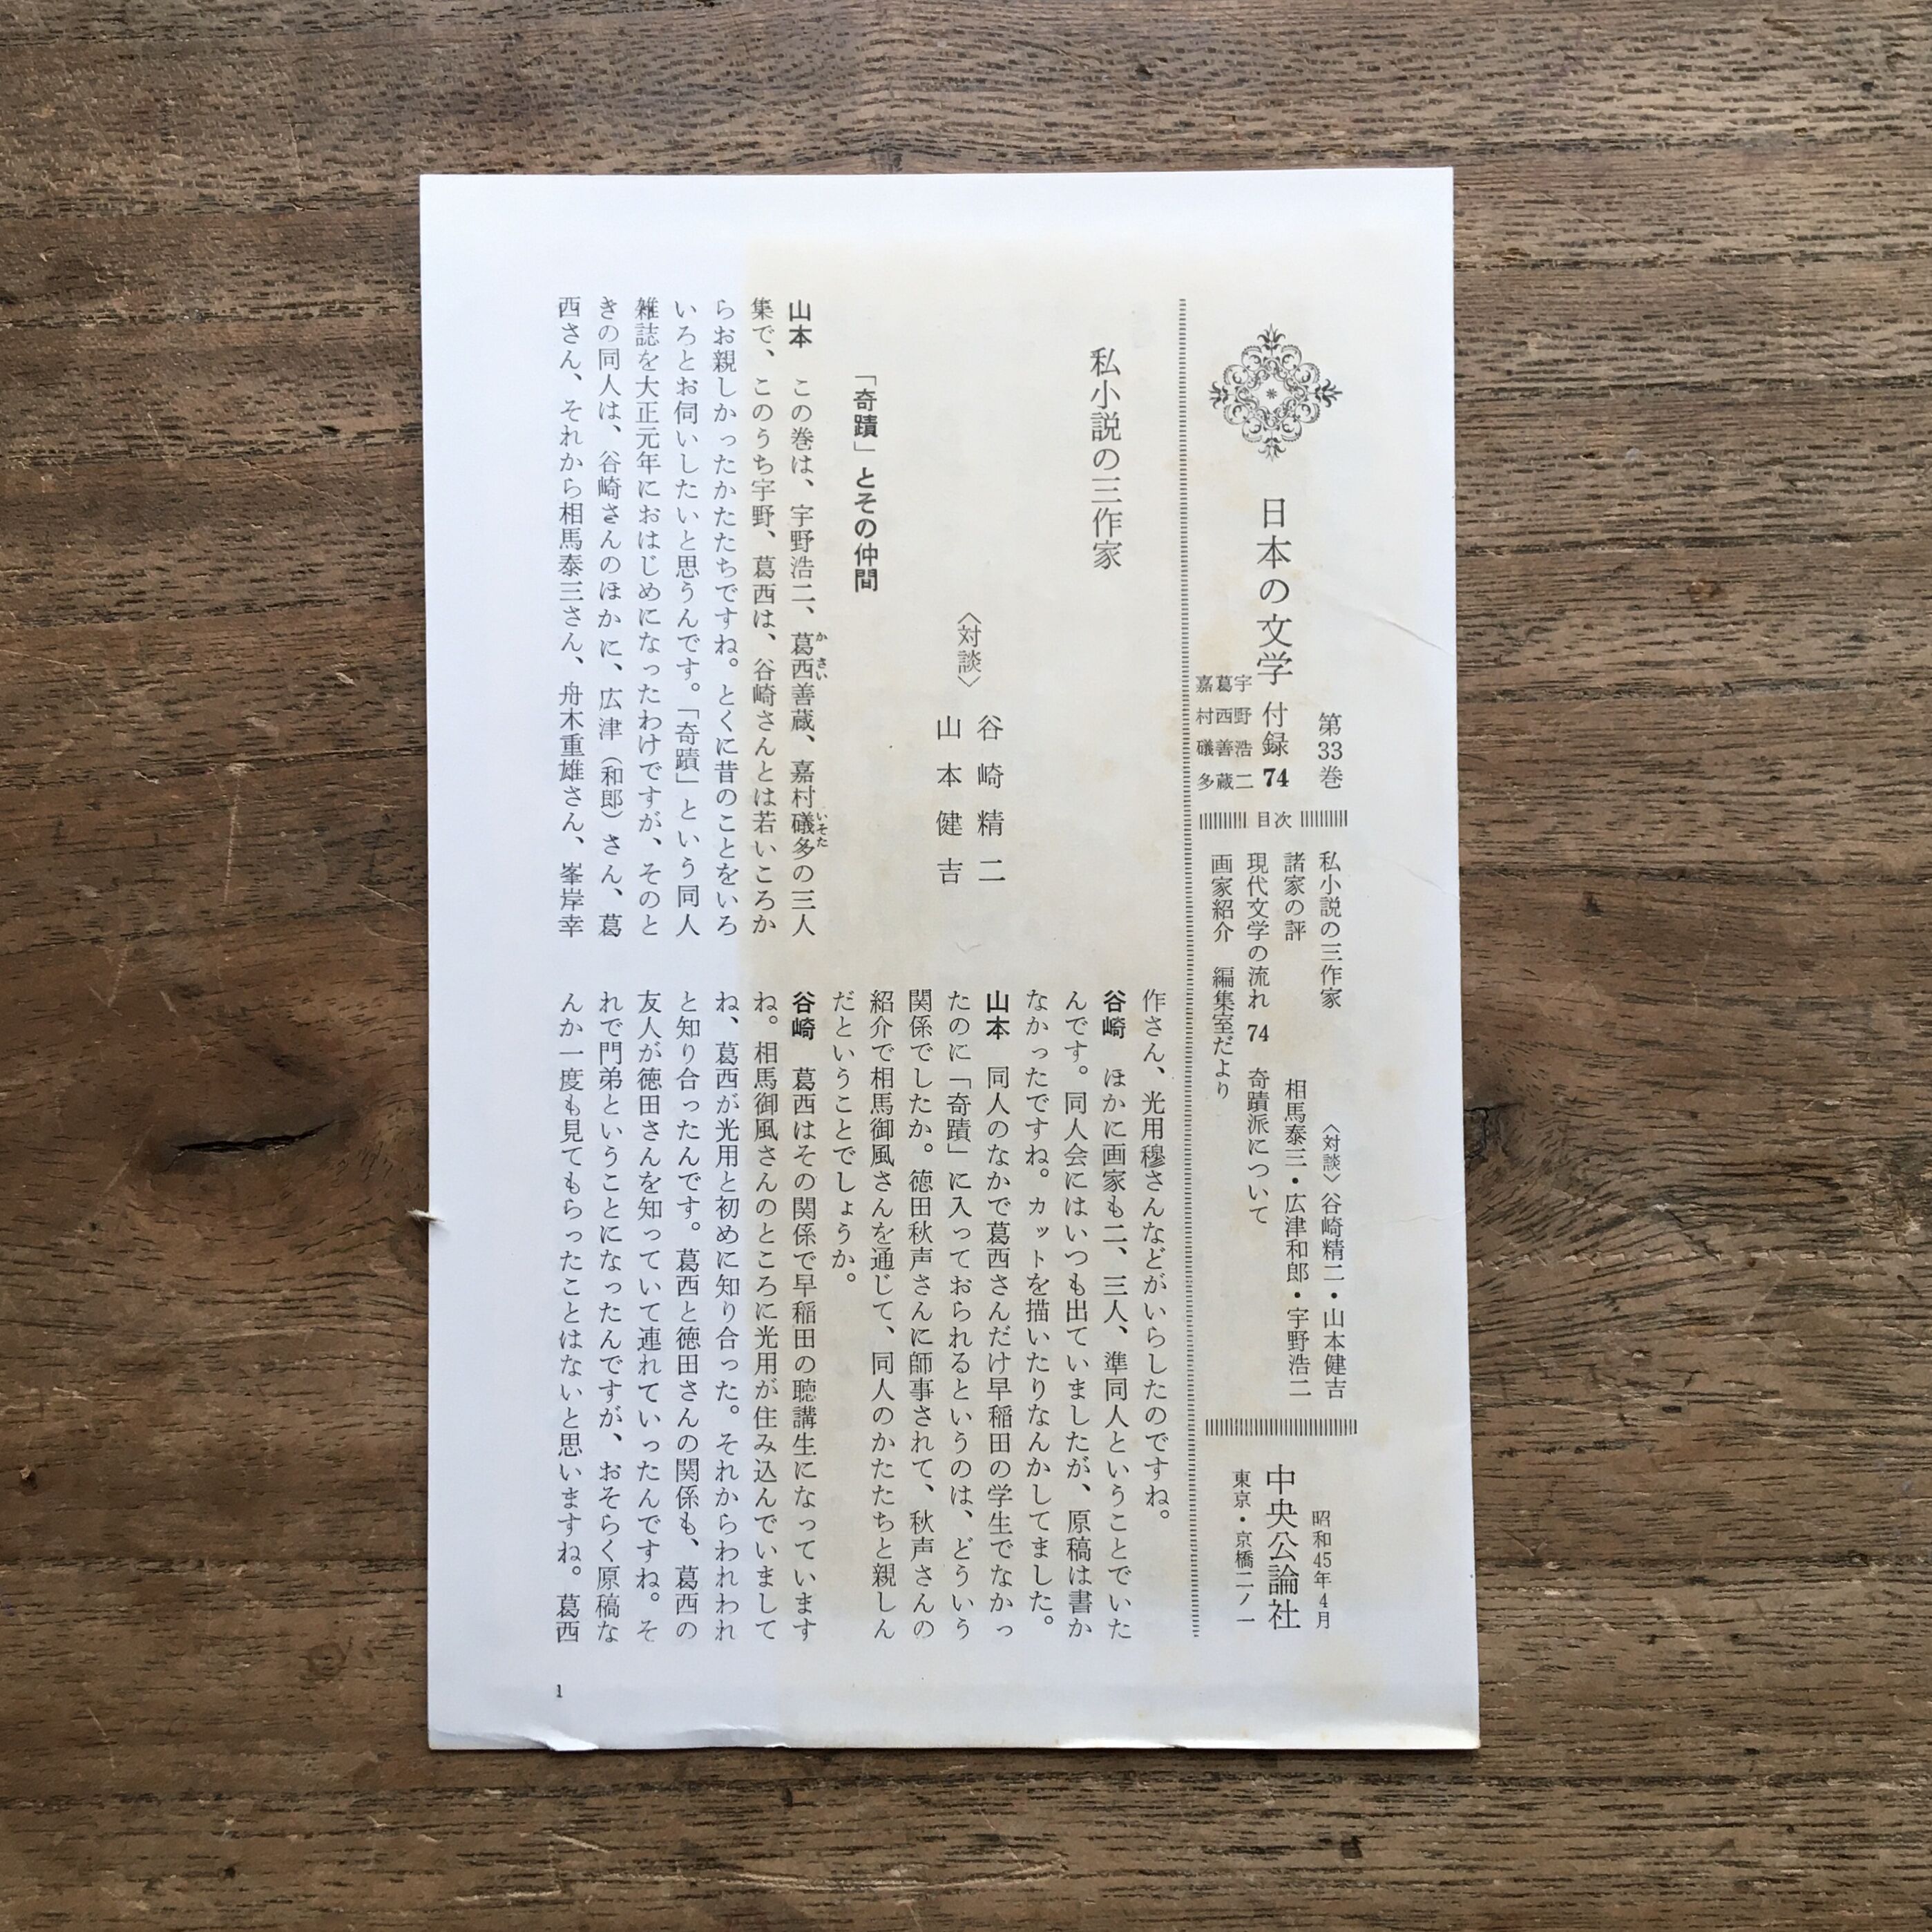 日本の文学 付録 74
第33巻
宇野浩二
葛西善蔵
嘉村礒多
目次
私小説の三作家 〈対談〉谷崎精二・山本健吉
諸家の評 相馬泰三・広津和郎・宇野浩二
現代文学の流れ 74 奇蹟派について
画家紹介 編集室だより
昭和45年4月
中央公論社
東京・京橋二ノ一
私小説の三作家
〈対談〉
谷崎精二
山本健吉
「奇蹟」とその仲間
山本 この巻は、宇野浩二、葛西善蔵、嘉村礒多の三人
かさい
いそた
集で、このうち宇野、葛西は、谷崎さんとは若いころか
らお親しかったかたたちですね。とくに昔のことをいろ
いろとお伺いしたいと思うんです。「奇蹟」という同人
雑誌を大正元年におはじめになったわけですが、そのと
きの同人は、谷崎さんのほかに、広津（和郎）さん、葛
西さん、それから相馬泰三さん、舟木重雄さん、峯岸幸
作さん、光用穆さんなどがいらしたのですね。
谷崎 ほかに画家も二、三人、準同人ということでいた
んです。同人会にはいつも出ていましたが、原稿は書か
なかったですね。カットを描いたりなんかしてました。
山本 同人のなかで葛西さんだけ早稲田の学生でなかっ
たのに「奇蹟」に入っておられるというのは、どういう
関係でしたか。徳田秋声さんに師事されて、秋声さんの
紹介で相馬御風さんを通じて、同人のかたたちと親しん
だということでしょうか。
谷崎 葛西はその関係で早稲田の聴講生になっています
ね。相馬御風さんのところに光用が住み込んでいまして
ね、葛西が光用と初めに知り合った。それからわれわれ
と知り合ったんです。葛西と徳田さんの関係も、葛西の
友人が徳田さんを知っていて連れていったんですね。そ
れで門弟ということになったんですが、おそらく原稿な
んか一度も見てもらったことはないと思いますね。葛西
1